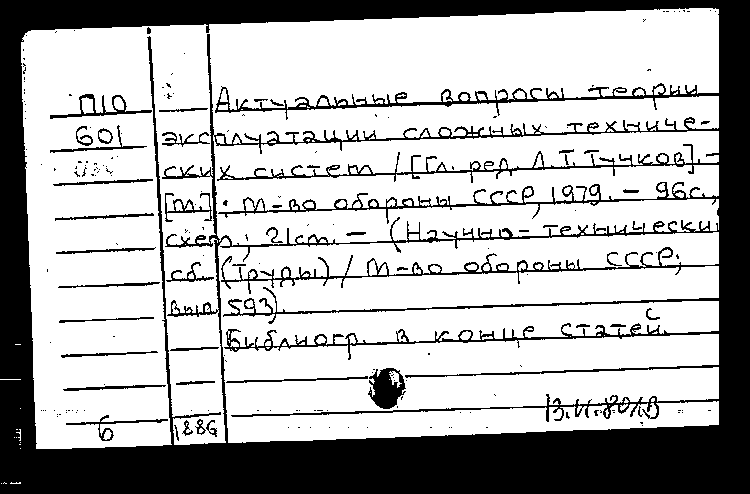 П10 Актуальные вопросы теории
601 эксплуатации сложных техниче-
ских систем / [Гл. ред. Л.Т. Тучков]. –
[М.] : М-во обороны СССР, 1979. – 96с.,
схем.; 21см. – (Научно-технический
сб. (Труды) / М-во обороны СССР;
вып. 593).
Библиогр. в конце статей.
с
6 188б